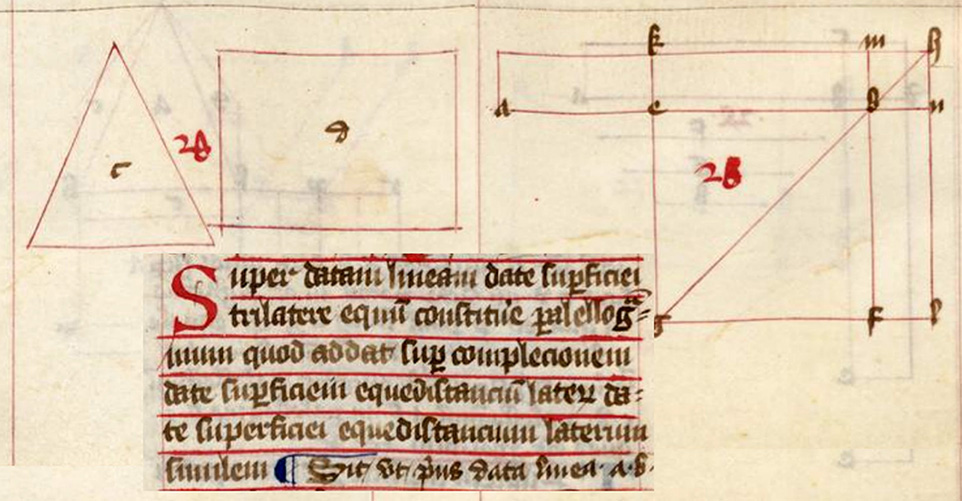 k m h
a e b n
28
c
d
28
g f l
Super datam lineam date supficiei
trilatere equū constitue paralellog̃ᵃ=
mum quod addat sup complecionem
date supficiem equedistanciū laterū da=
te superficiei equedistancium laterum
similem Sit vt p̄us data linea · a · b ·